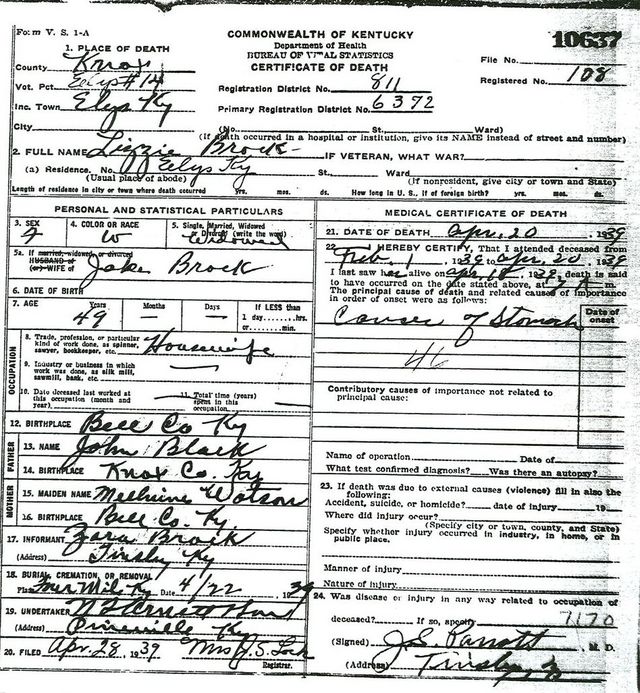 Form V. S. 1-A
COMMONWEALTH OF KENTUCKY
Department of Health
BUREAU OF VITAL STATISTICS
CERTIFICATE OF DEATH
10637
File No.
Registered No. 108
1. PLACE OF DEATH
County Knox
Vot. Pct. Elys #14
Inc. Town Elys Ky
City
Registration District No. 811
Primary Registration District No. 6372
(No. St. Ward)
(If death occurred in a hospital or institution, give its NAME instead of street and number)
2. FULL NAME Lizzie Brock
IF VETERAN, WHAT WAR?
(a) Residence. No. Elys Ky St., Ward
(Usual place of abode) (If nonresident, give city or town and State)
Length of residence in city or town where death occurred yrs. mos. ds. How long in U. S., if of foreign birth? yrs. mos. ds.
PERSONAL AND STATISTICAL PARTICULARS
3. SEX
F
4. COLOR OR RACE
W
5. Single, Married, Widowed
or Divorced (write the word)
Widowed
5a. If married, widowed or divorced
HUSBAND of
(or) WIFE of Jake Brock
6. DATE OF BIRTH
7. AGE Years Months Days If LESS than
49 1 day........hrs.
or........min.
OCCUPATION
8. Trade, profession, or particular
kind of work done, as spinner,
sawyer, bookkeeper, etc. Housewife
9. Industry or business in which
work was done, as silk mill,
sawmill, bank, etc.
10. Date deceased last worked at
this occupation (month and
year)
11. Total time (years)
spent in this
occupation
12. BIRTHPLACE Bell Co Ky
FATHER
13. NAME John Black
14. BIRTHPLACE Knox Co. Ky
MOTHER
15. MAIDEN NAME Watson
16. BIRTHPLACE Bell Co. Ky.
17. INFORMANT Zora Brock
(Address) Tinsley Ky
18. BURIAL, CREMATION, OR REMOVAL
Place Four Mile Ky Date 4/22 1939
19. UNDERTAKER
(Address) Pineville Ky
20. FILED Apr. 28, 1939 Mrs J. S. Lock
Registrar.
MEDICAL CERTIFICATE OF DEATH
21. DATE OF DEATH Apr. 20, 1939
22. I HEREBY CERTIFY, That I attended deceased from
Feb. 1, 1939, Apr. 20, 1939
I last saw her alive on Apr 18, 1939, death is said
to have occurred on the date stated above, at m.
The principal cause of death and related causes of importance
in order of onset were as follows:
Date of
onset
Cancer of Stomach
46
Contributory causes of importance not related to
principal cause:
Name of operation Date of
What test confirmed diagnosis? Was there an autopsy?
23. If death was due to external causes (violence) fill in also the
following:
Accident, suicide, or homicide? date of injury 19
Where did injury occur?
(Specify city or town, county, and State)
Specify whether injury occurred in industry, in home, or in
public place.
Manner of injury
Nature of injury
24. Was disease or injury in any way related to occupation of
deceased? If so, specify 7170
(Signed) J. S. Parrott, M. D.
(Address) Tinsley, Ky